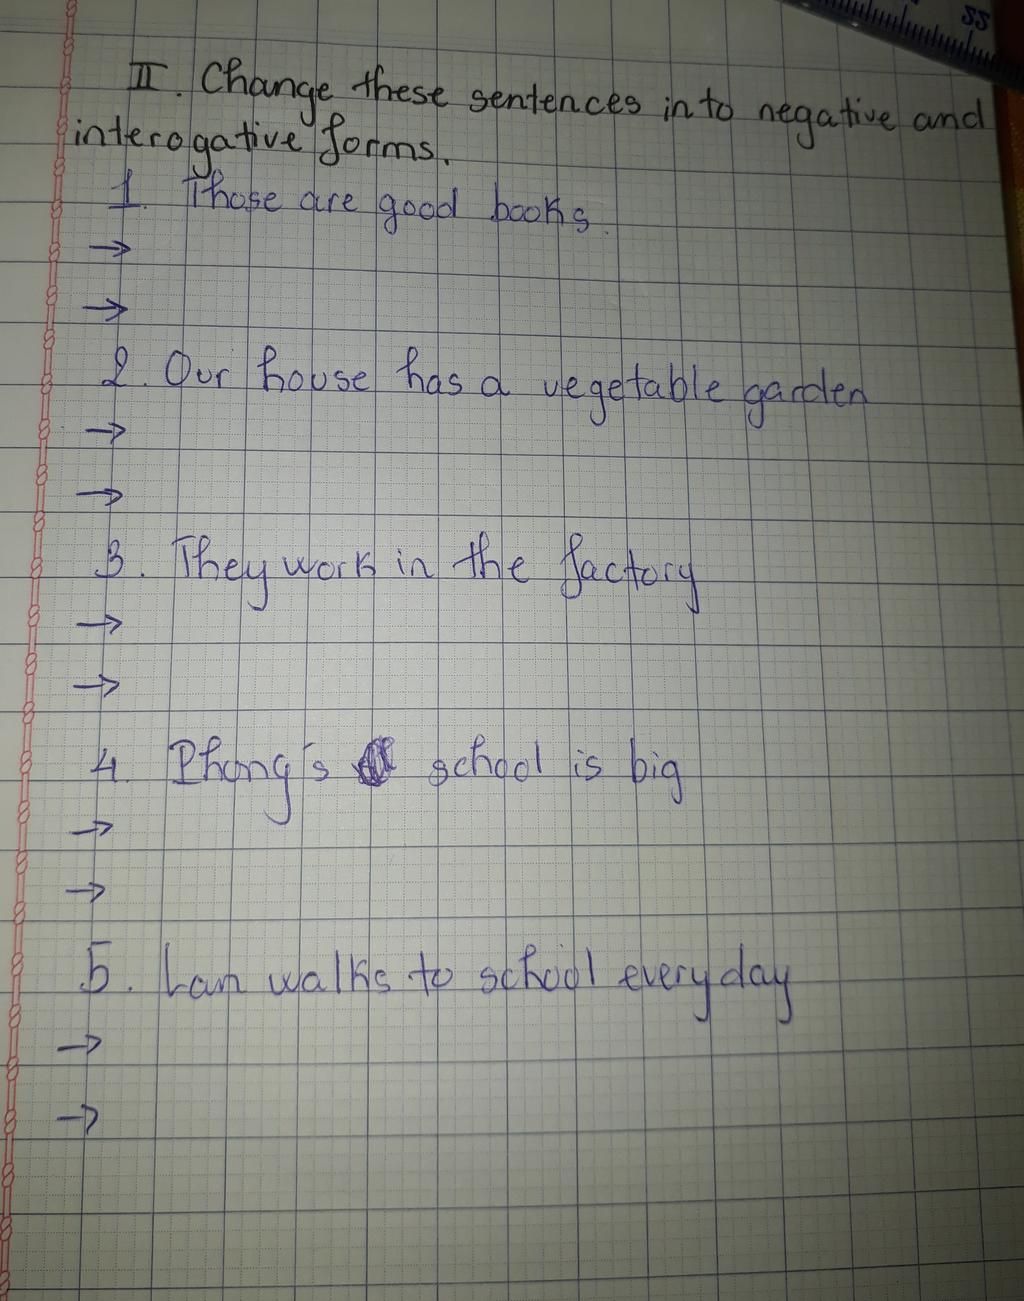 II. Change these sentences into negative and
interogative forms.
1. Those are good books.
→
→
2. Our house has a vegetable garden
→
→
3. They work in the factory
→
→
4. Phong's school is big
→
→
5. Lan walks to school every day
→
→